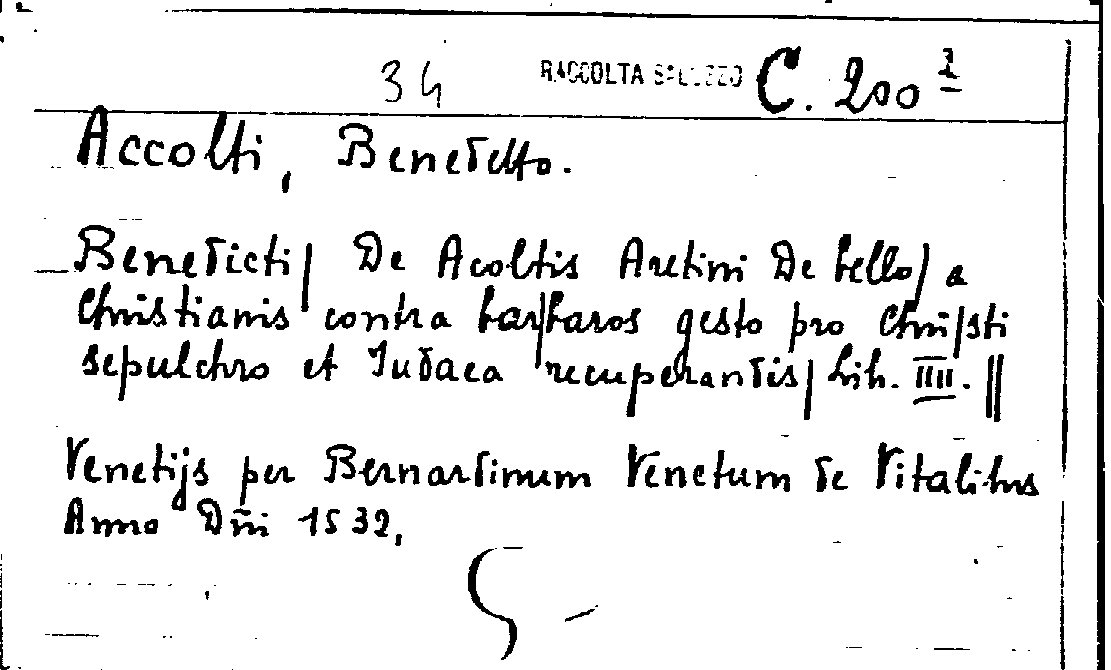 34 RACCOLTA C. 200 1
Accolti, Benedetto.
Benedicti| De Acoltis Aretini De bello| a
Christianis contra bar|baros gesto pro Chri|sti
sepulchro et Iudaea recuperandis| Lib. IIII. ||
Venetijs per Bernardinum Venetum de Vitalibus
Anno Dñi 1532,